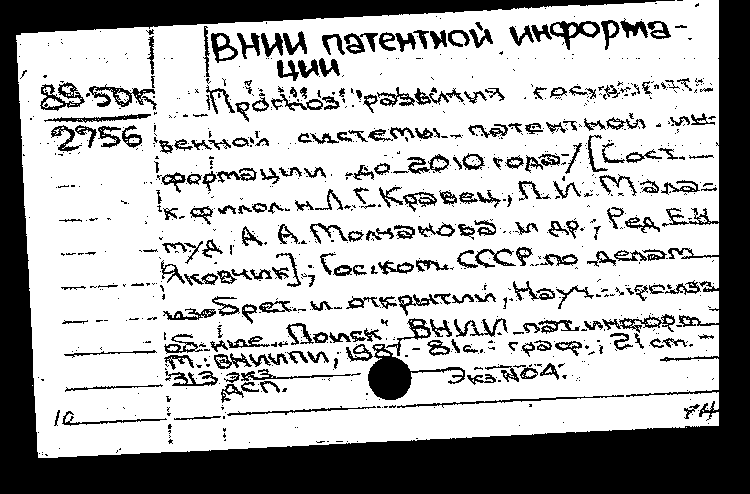 ВНИИ патентной информа-
ции
89-50К
2756
Прогноз развития государст-
венной системы патентной ин-
формации до 2010 года / [Сост.
к. филол. н. Л. Г. Кравец, П. И. Мала-
туд, А. А. Молчанова и др.; Ред. Е. Н.
Яковчик]; Гос. ком. СССР по делам
изобрет. и открытий, Науч.-произв.
об-ние "Поиск" ВНИИ пат. информ.
М.: ВНИИПИ, 1987. - 81с.: граф.; 21 см. -
313 экз. Экз. №04.
ДСП.
10